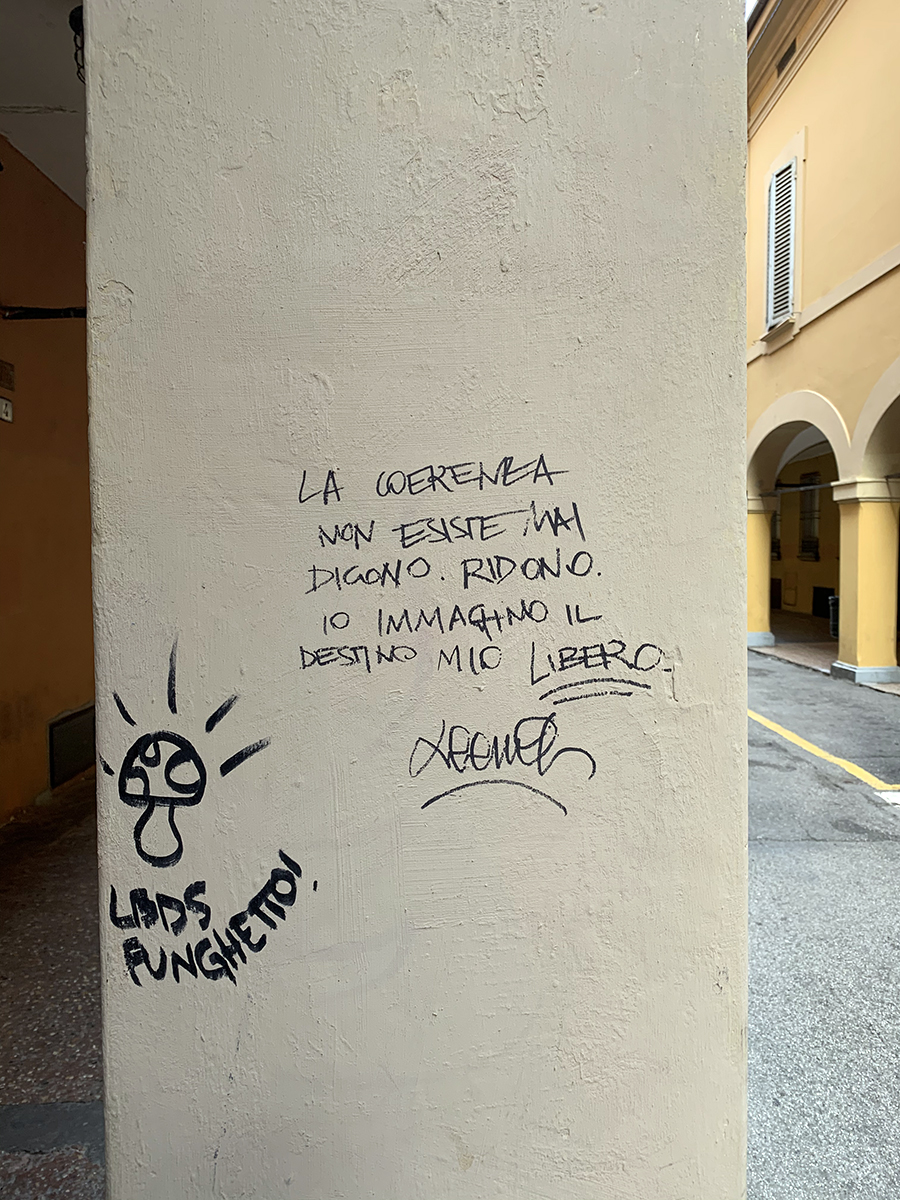 LA COERENZA
NON ESISTE MAI
DICONO. RIDONO.
IO IMMAGINO IL
DESTINO MIO LIBERO.
LBDS
FUNGHETTO!
4